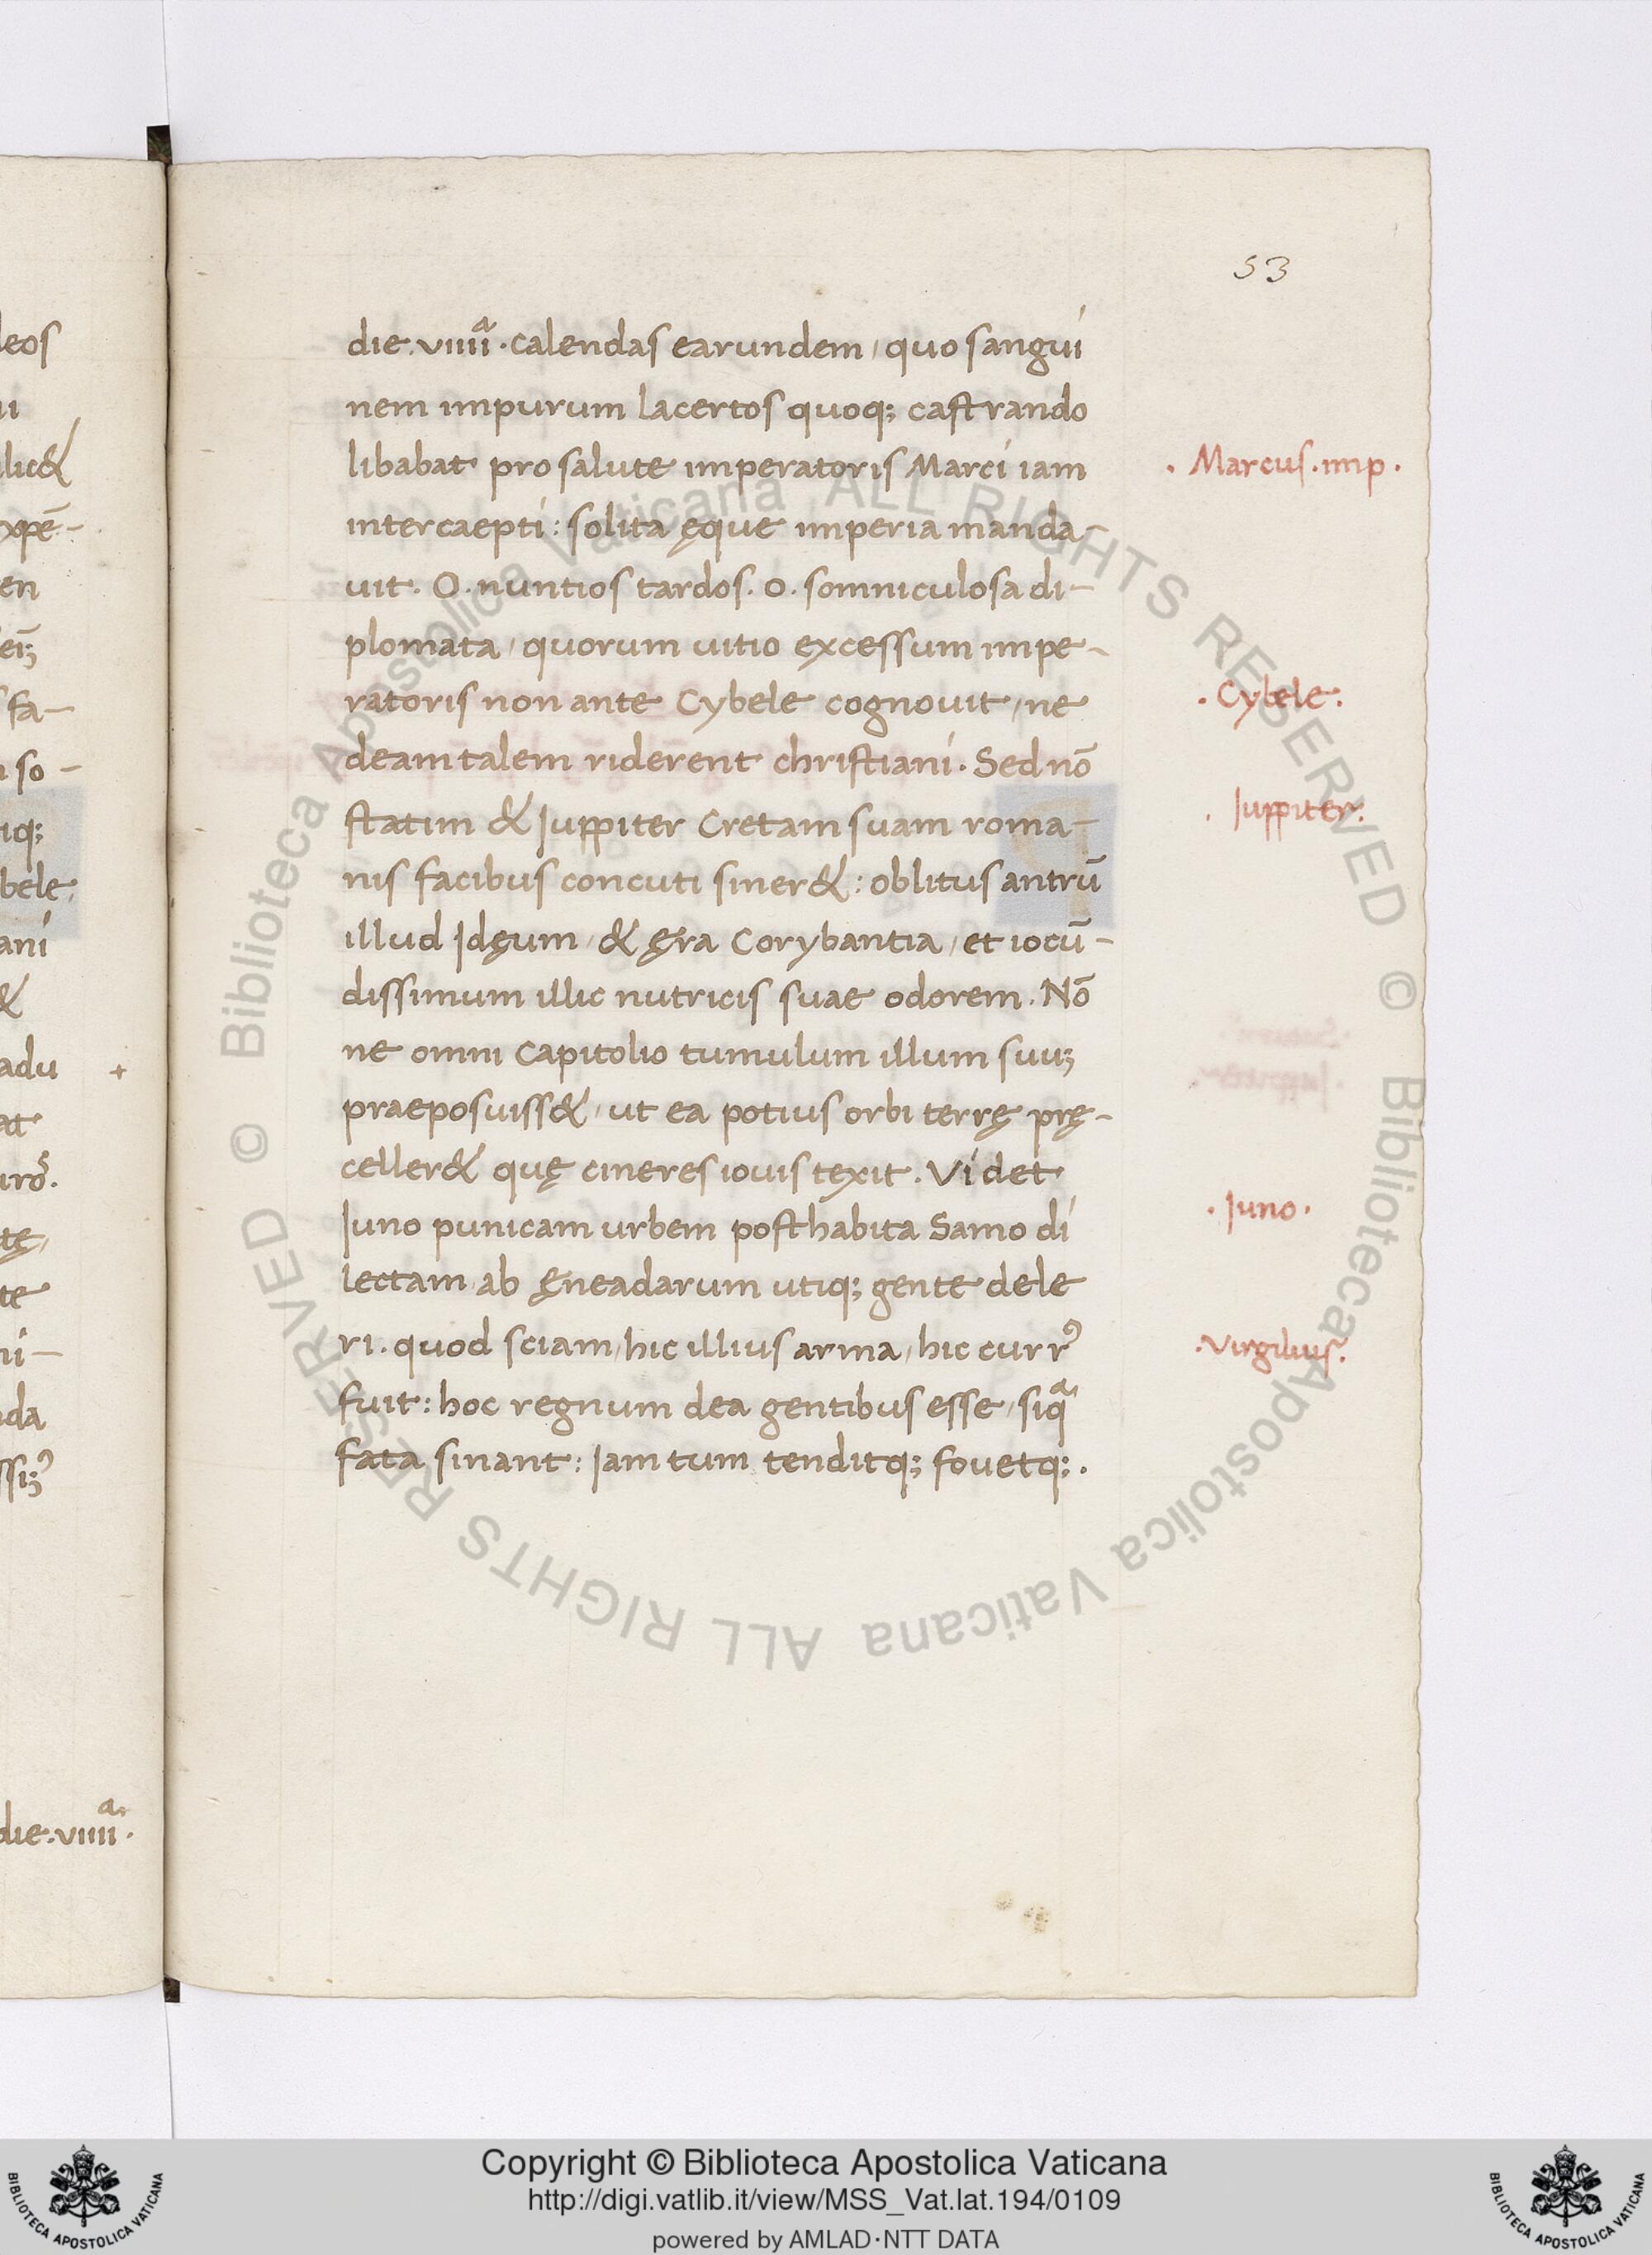 53
die .viiiiª. calendas earundem, quo sangui
nem impurum lacertos quoq; castrando
libabat pro salute imperatoris Marci iam
intercaepti: solita ęque imperia manda-
uit. O. nuntios tardos. o. somniculosa di-
plomata, quorum uitio excessum impe-
ratoris non ante Cybele cognouit, ne
deam talem riderent christiani. Sed nō
statim & Juppiter Cretam suam roma-
nis facibus concuti siner&: oblitus antrū
illud Jdęum, & ęra Corybantia, et iocū-
dissimum illic nutricis suae odorem. Nō
ne omni Capitolio tumulum illum suuꝫ
praeposuiss&, ut ea potius orbi terrę prę-
celler& quę cineres iouis texit. Vi det
Juno punicam urbem posthabita Samo di
lectam ab Ęneadarum utiq; gente dele
ri. quod sciam, hic illius arma, hic currꝰ
fuit: hoc regnum dea gentibus esse, siqª
fata sinant: Jam tum tenditq; fouetq;.
. Marcus. imp.
. Cybele.
. Juppiter.
. Juno.
. Virgilius.
leos
lic&
xpē-
en
fa-
so -
iq;
bele.
ani
&
adu +
at
tę,
te
ni-
da
die .viiiiª.
© Biblioteca Apostolica Vaticana ALL RIGHTS RESERVED
© Biblioteca Apostolica Vaticana ALL RIGHTS RESERVED
Copyright © Biblioteca Apostolica Vaticana
http://digi.vatlib.it/view/MSS_Vat.lat.194/0109
powered by AMLAD·NTT DATA
BIBLIOTECA APOSTOLICA VATICANA
BIBLIOTECA APOSTOLICA VATICANA